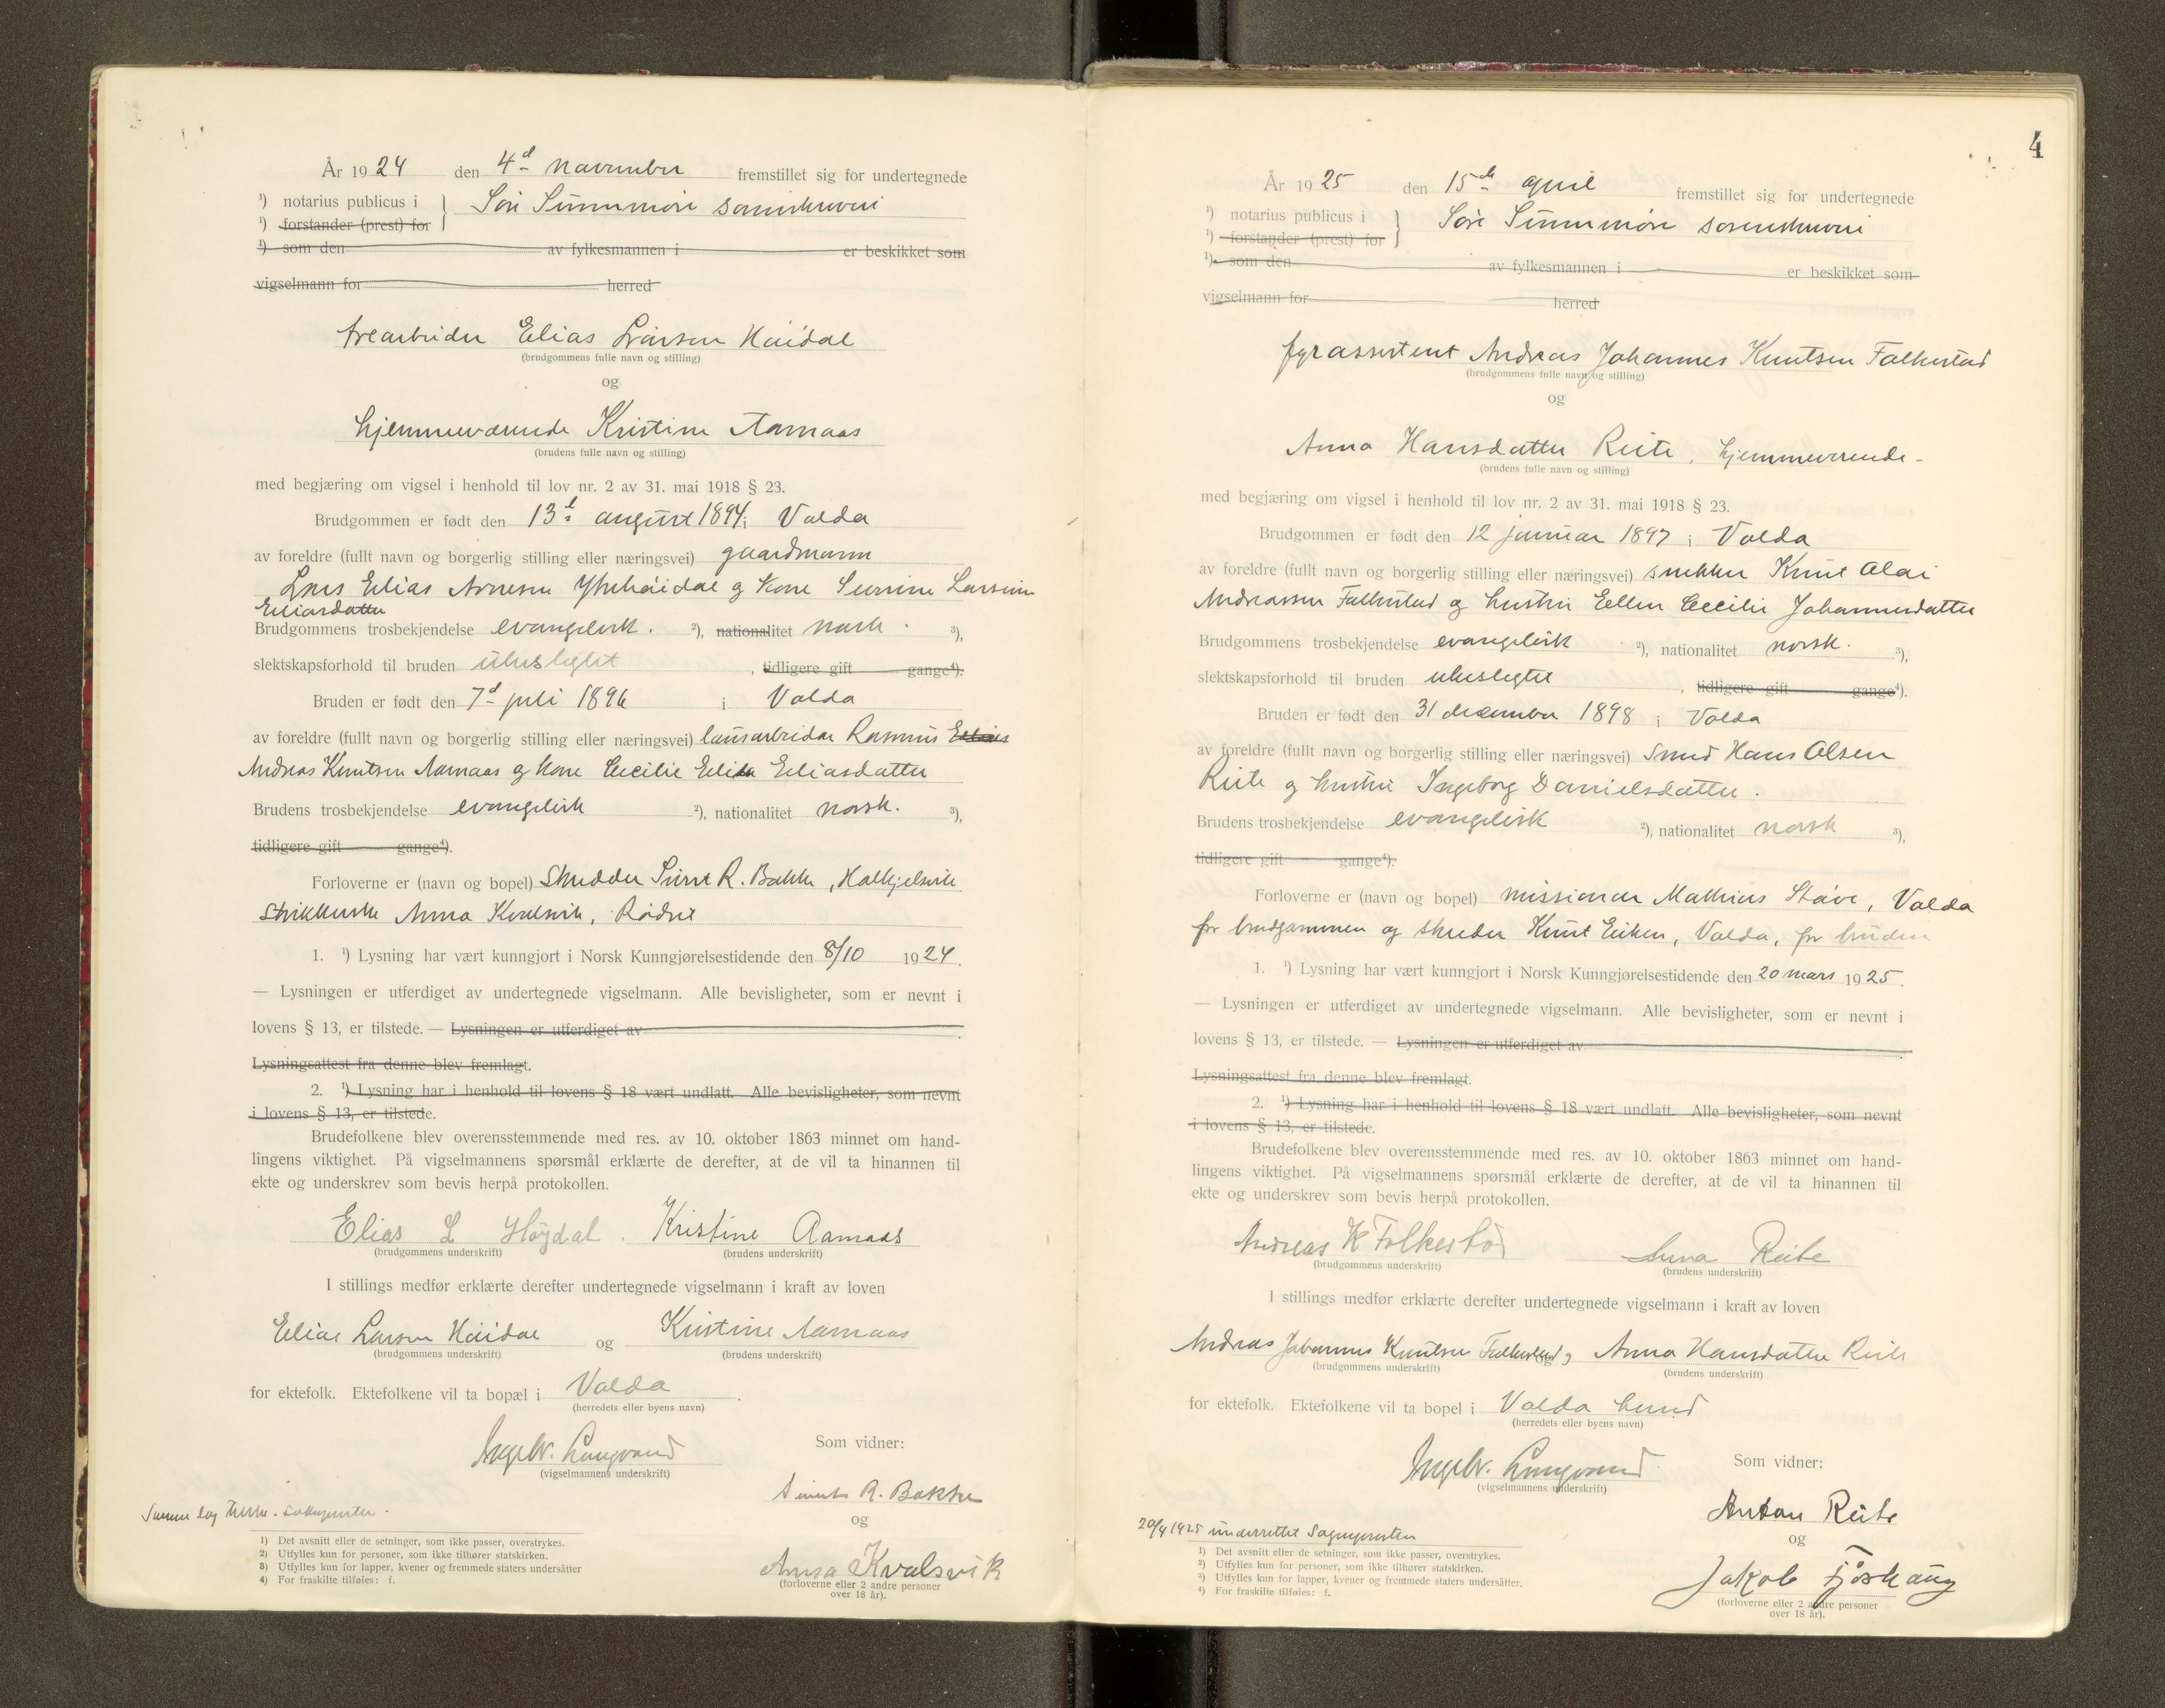 År 1924 den 4d november fremstillet sig for undertegnede
¹) notarius publicus i } Søre Sunnmøre sorenskriveri
¹) forstander (prest) for
¹) som den av fylkesmannen i er beskikket som
vigselmann for herred
trearbeider Elias Larsen Høidal
(brudgommens fulle navn og stilling)
og
hjemmeværende Kristine Aamaas
(brudens fulle navn og stilling)
med begjæring om vigsel i henhold til lov nr. 2 av 31. mai 1918 § 23.
Brudgommen er født den 13d august 1894 i Volda
av foreldre (fullt navn og borgerlig stilling eller næringsvei) gaardmann
Lars Elias Arnesen Ytrehøidal og kone Larsine
Eliasdatter
Brudgommens trosbekjendelse evangelisk. ²), nationalitet norsk. ³),
slektskapsforhold til bruden ubeslegtet , tidligere gift gange⁴).
Bruden er født den 7d juli 1896 i Volda
av foreldre (fullt navn og borgerlig stilling eller næringsvei) lausarbeidar Rasmus Elias
Andreas Knutsen Aamaas og kone Cecilie Elida Eliasdatter
Brudens trosbekjendelse evangelisk ²), nationalitet norsk. ³),
tidligere gift gange⁴).
Forloverne er (navn og bopel) Skredder Sivert R. Bakke, Folkestad
strikkerske Anna Kvalsvik, Rødset
1. ¹) Lysning har vært kunngjort i Norsk Kunngjørelsestidende den 8/10 1924.
— Lysningen er utferdiget av undertegnede vigselmann. Alle bevisligheter, som er nevnt i
lovens § 13, er tilstede. — Lysningen er utferdiget av .
Lysningsattest fra denne blev fremlagt.
2. ¹) Lysning har i henhold til lovens § 18 vært undlatt. Alle bevisligheter, som nevnt
i lovens § 13, er tilstede.
Brudefolkene blev overensstemmende med res. av 10. oktober 1863 minnet om hand-
lingens viktighet. På vigselmannens spørsmål erklærte de derefter, at de vil ta hinannen til
ekte og underskrev som bevis herpå protokollen.
Elias L Høydal. Kristine Aamaas
(brudgommens underskrift) (brudens underskrift)
I stillings medfør erklærte derefter undertegnede vigselmann i kraft av loven
Elias Larsen Høidal og Kristine Aamaas
(brudgommens underskrift) (brudens underskrift)
for ektefolk. Ektefolkene vil ta bopæl i Volda .
(herredets eller byens navn)
Ingebr. Langvand
(vigselmannens underskrift)
Som vidner:
Sivert R. Bakke
og
Anna Kvalsvik
(forloverne eller 2 andre personer
over 18 år).
Samme dag sogneprester.
1) Det avsnitt eller de setninger, som ikke passer, overstrykes.
2) Utfylles kun for personer, som ikke tilhører statskirken.
3) Utfylles kun for lapper, kvener og fremmede staters undersåtter
4) For fraskilte tilføies: f.
4
År 1925 den 15de april fremstillet sig for undertegnede
¹) notarius publicus i } Søre Sunnmøre sorenskriveri
¹) forstander (prest) for
¹) som den av fylkesmannen i er beskikket som
vigselmann for herred
fyrassistent Andreas Johannes Knutsen Folkestad
(brudgommens fulle navn og stilling)
og
Anna Hansdatter Reite, hjemmeværende -
(brudens fulle navn og stilling)
med begjæring om vigsel i henhold til lov nr. 2 av 31. mai 1918 § 23.
Brudgommen er født den 12 januar 1897 i Volda
av foreldre (fullt navn og borgerlig stilling eller næringsvei) snekker Knut Olai
Andreassen Folkestad og hustru Ellen Cecilie Johannesdatter
Brudgommens trosbekjendelse evangelisk ²), nationalitet norsk. ³),
slektskapsforhold til bruden ubeslegtet , tidligere gift gange⁴).
Bruden er født den 31 december 1898 i Volda
av foreldre (fullt navn og borgerlig stilling eller næringsvei) smed Hans Olsen
Reite og hustru Ingeborg Danielsdatter.
Brudens trosbekjendelse evangelisk ²), nationalitet norsk ³),
tidligere gift gange⁴).
Forloverne er (navn og bopel) missionær Mathias Støve, Volda
for brudgommen og skredder Knut Eiken, Volda, for bruden
1. ¹) Lysning har vært kunngjort i Norsk Kunngjørelsestidende den 20 mars 1925.
— Lysningen er utferdiget av undertegnede vigselmann. Alle bevisligheter, som er nevnt i
lovens § 13, er tilstede. — Lysningen er utferdiget av .
Lysningsattest fra denne blev fremlagt.
2. ¹) Lysning har i henhold til lovens § 18 vært undlatt. Alle bevisligheter, som nevnt
i lovens § 13, er tilstede.
Brudefolkene blev overensstemmende med res. av 10. oktober 1863 minnet om hand-
lingens viktighet. På vigselmannens spørsmål erklærte de derefter, at de vil ta hinannen til
ekte og underskrev som bevis herpå protokollen.
Andreas K Folkestad Anna Reite
(brudgommens underskrift) (brudens underskrift)
I stillings medfør erklærte derefter undertegnede vigselmann i kraft av loven
Andreas Johannes Knutsen Folkestad og Anna Hansdatter Reite
(brudgommens underskrift) (brudens underskrift)
for ektefolk. Ektefolkene vil ta bopel i Volda herred
(herredets eller byens navn)
Ingebr. Langvand
(vigselmannens underskrift)
Som vidner:
Anton Reite
og
Jakob Fjøshaug
(forloverne eller 2 andre personer
over 18 år).
20/4 1925 underrettet Sognepresten
1) Det avsnitt eller de setninger, som ikke passer, overstrykes.
2) Utfylles kun for personer, som ikke tilhører statskirken.
3) Utfylles kun for lapper, kvener og fremmede staters undersåtter.
4) For fraskilte tilføies: f.